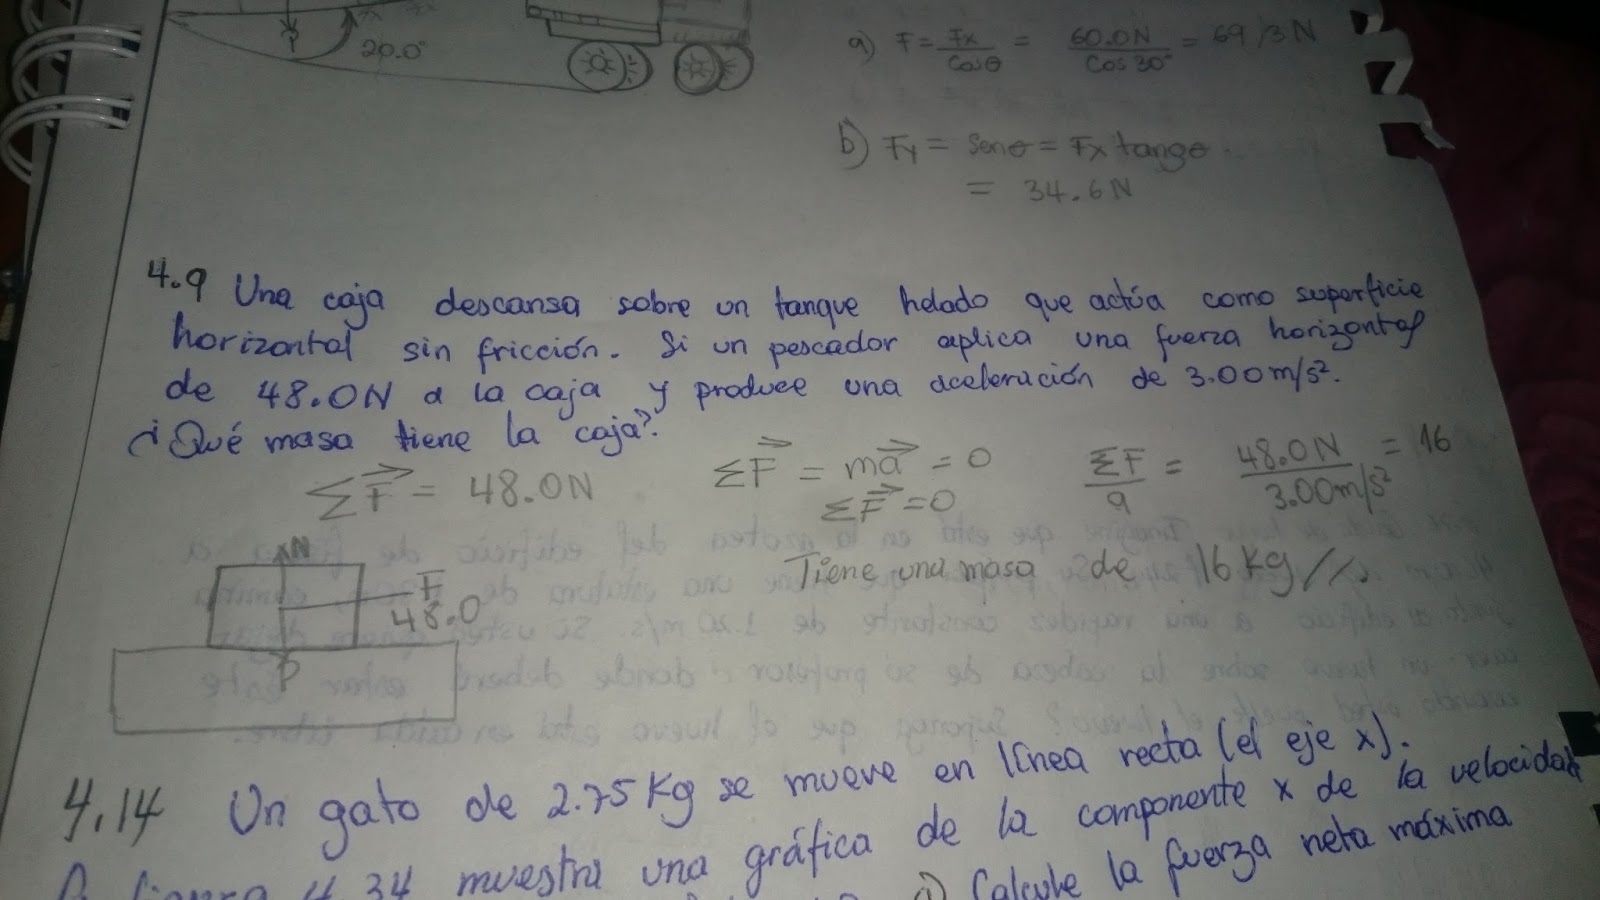 20.0°
a) F = Fx / Cosθ = 60.0N / Cos 30° = 69.3 N
b) FY = Senθ = Fx tangθ.
= 34.6N
4.9 Una caja descansa sobre un tanque helado que actúa como superficie
horizontal sin fricción. Si un pescador aplica una fuerza horizontal
de 48.0N a la caja y produce una aceleración de 3.00m/s².
¿Qué masa tiene la caja?
ΣF⃗ = 48.0N
ΣF⃗ = ma⃗ = 0
ΣF⃗ = 0
ΣF / a = 48.0N / 3.00m/s² = 16
Tiene una masa de 16 kg //.
N
F
48.0
P
4.14 Un gato de 2.75 Kg se mueve en línea recta (el eje x).
4.34 muestra una gráfica de la componente x de la velocidad
Calcule la fuerza neta máxima